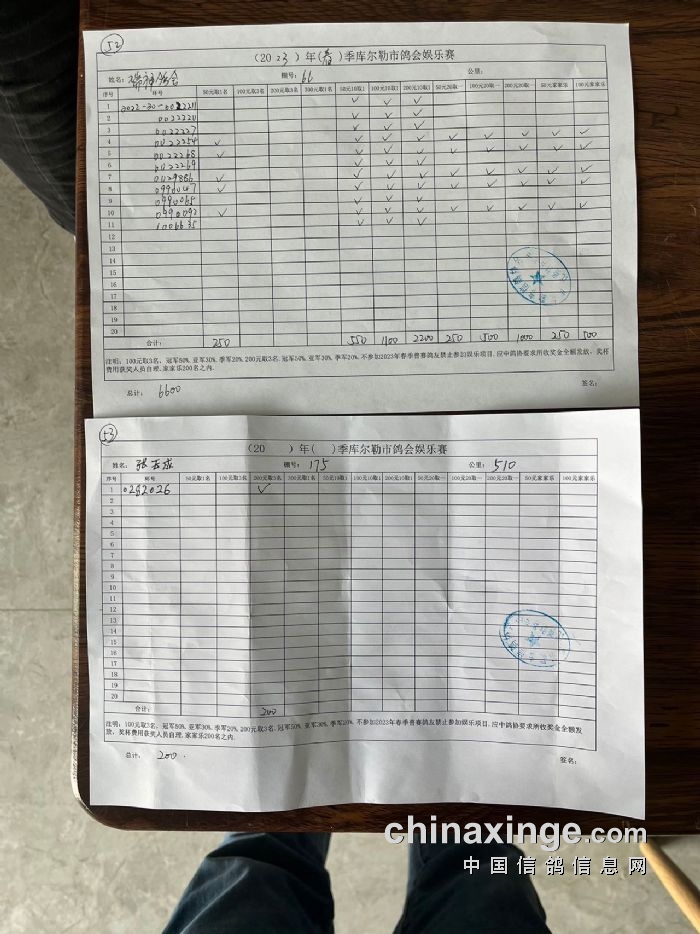 52
(2023)年(春)季库尔勒市鸽会娱乐赛
姓名: 棚号: 66 公里:
序号 环号 50元取1名 100元取3名 200元取3名 300元取1名 50元10取1 100元10取1 200元10取1 50元20取一 100元20取一 200元20取一 50元家家乐 100元家家乐
1 2022-30-0022211 ✓ ✓ ✓
2 0022220 ✓ ✓ ✓
3 0022227 ✓ ✓ ✓
4 0022254 ✓ ✓ ✓ ✓ ✓ ✓ ✓ ✓ ✓
5 0022268 ✓ ✓ ✓ ✓ ✓ ✓ ✓ ✓ ✓
6 0022269 ✓ ✓ ✓
7 0429886 ✓ ✓ ✓ ✓ ✓ ✓ ✓ ✓ ✓
8 0990047 ✓ ✓ ✓ ✓ ✓ ✓ ✓ ✓ ✓
9 0990065 ✓ ✓ ✓
10 0990092 ✓ ✓ ✓ ✓ ✓ ✓ ✓ ✓ ✓
11 1006635 ✓ ✓ ✓
12
13
14
15
16
17
18
19
20
合计: 250 550 1100 2200 250 500 1000 250 500
注明:100元取3名、冠军50%,亚军30%,季军20%,200元取3名,冠军50%,亚军30%,季军20%,不参加2023年春季普赛鸽友禁止参加娱乐项目,应中鸽协要求所收奖金全额发放,奖杯
费用获奖人员自理,家家乐200名之内.
总计: 6600 签名:
53
(20 )年( )季库尔勒市鸽会娱乐赛
姓名: 张玉成 棚号: 175 公里: 510
序号 环号 50元取1名 100元取3名 200元取3名 300元取1名 50元10取1 100元10取1 200元10取1 50元20取一 100元20取一 200元20取一 50元家家乐 100元家家乐
1 0282026 ✓
2
3
4
5
6
7
8
9
10
11
12
13
14
15
16
17
18
19
20
合计: 200
注明:100元取3名、冠军50%,亚军30%,季军20%,200元取3名,冠军50%,亚军30%,季军20%,不参加2023年春季普赛鸽友禁止参加娱乐项目,应中鸽协要求所收奖金全额发
放,奖杯费用获奖人员自理,家家乐200名之内.
总计: 200. 签名:
chinaxinge.com
中国信鸽信息网